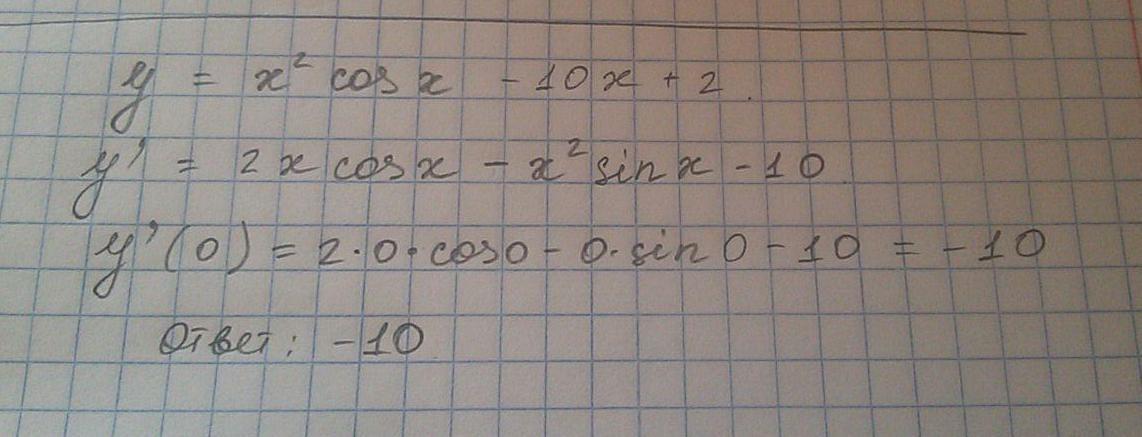 y = x² cos x - 10x + 2.
y' = 2x cos x - x² sin x - 10.
y'(0) = 2·0·cos0 - 0·sin0 - 10 = -10
Ответ: -10